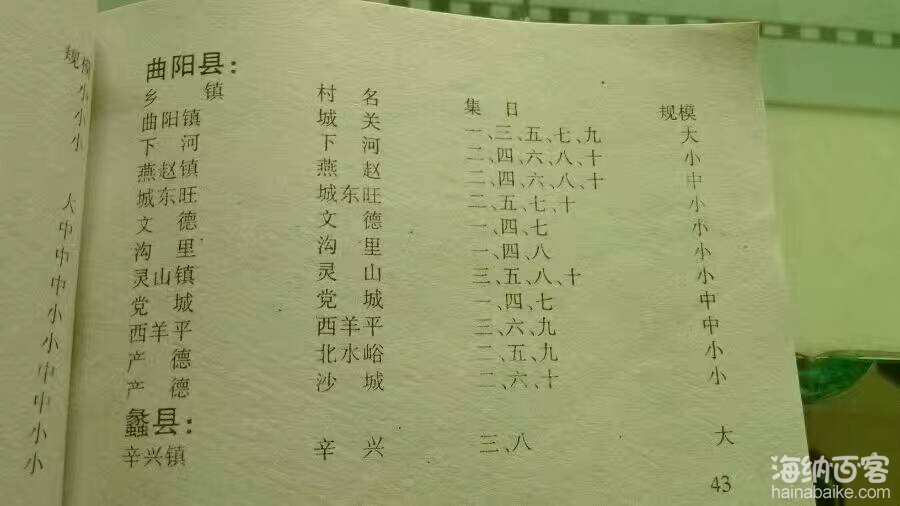 规模
小
小
小
大
中
中
中
小
小
中
中
小
小
曲阳县：
乡镇 村名 集日 规模
曲阳镇 城关 一、三、五、七、九 大
下河 下河 二、四、六、八、十 小
燕赵镇 燕赵 二、四、六、八、十 中
城东旺 城东旺 二、五、七、十 小
文德 文德 一、四、七 小
沟里 沟里 一、四、八 小
灵山镇 灵山 三、五、八、十 小
党城 党城 一、四、七 中
西羊平 西羊平 三、六、九 中
产德 北水峪 二、五、九 小
产德 沙城 二、六、十 小
蠡县：
辛兴镇 辛兴 三、八 大
43
海纳百客
hainabaike.com